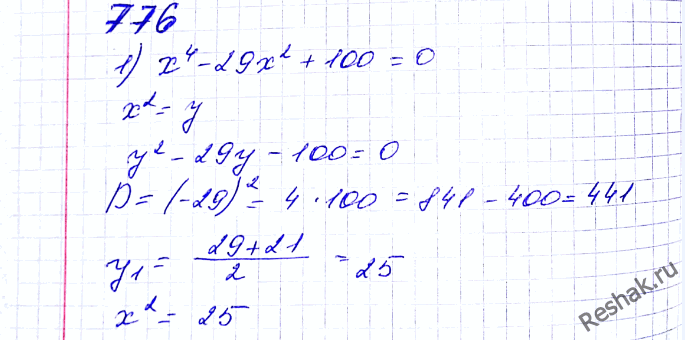 776
1) x⁴ - 29x² + 100 = 0
x² = y
y² - 29y - 100 = 0
D = (-29)² - 4 · 100 = 841 - 400 = 441
y₁ = (29+21)/2 = 25
x² = 25
Reshak.ru